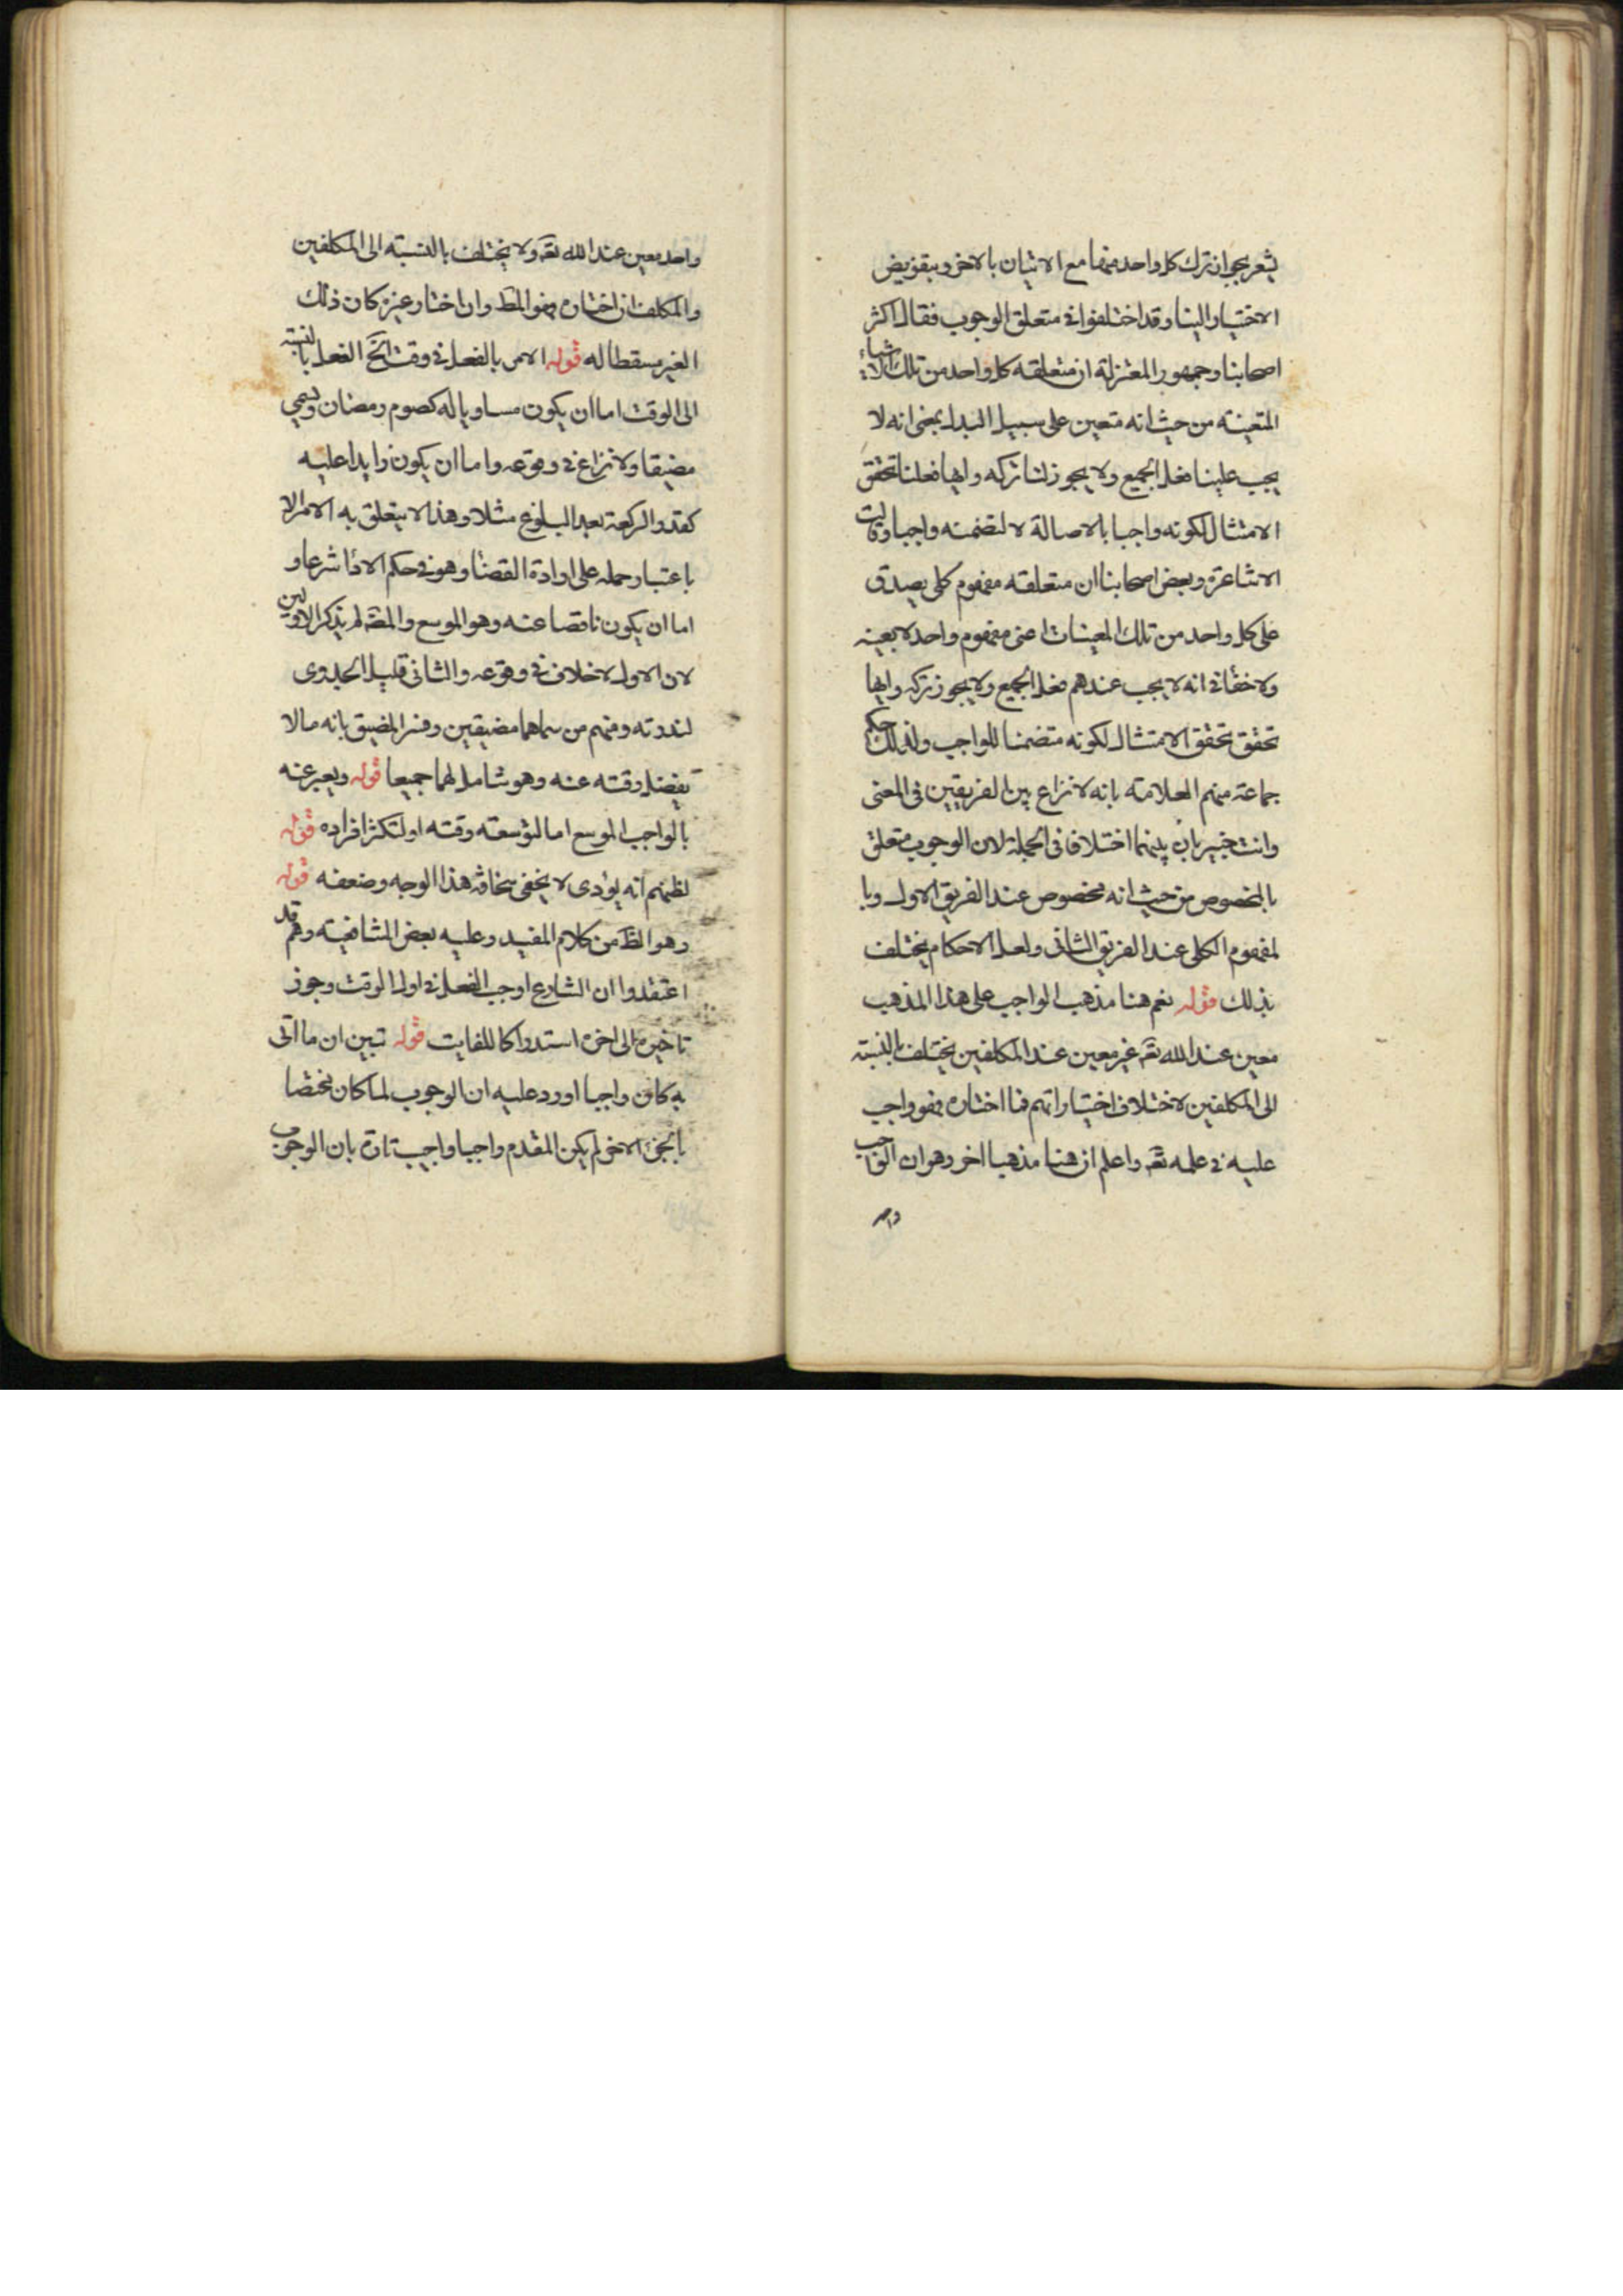 يشعر بجواز ترك كل واحد منهما مع الاتيان بالاخر وبتفويض
الاختيار الينا وقد اختلفوا في متعلق الوجوب فقال اكثر
اصحابنا وجمهور المعتزلة ان متعلقه كل واحد من تلك الاشياء
المتعينة من حيث انه متعين على سبيل البدل بمعنى انه لا
يجب علينا فعل الجميع ولا يجوز لنا تركه وايها فعلنا تحقق
الامتثال لكونه واجبا بالاصالة لا لتضمنه واجبا وقالت
الاشاعرة وبعض اصحابنا ان متعلقه مفهوم كلي يصدق
على كل واحد من تلك المعينات اعنى مفهوم واحد لا بعينه
ولا خفأ في انه لا يجب عندهم فعل الجميع ولا يجوز تركه وايها
تحقق تحقق الامتثال لكونه متضمنا للواجب ولذلك حكم
جماعة منهم العلامة بانه لا نزاع بين الفريقين في المعنى
وانت خبير بان بينهما اختلافا في الجملة لان الوجوب متعلق
بالمخصوص من حيث انه مخصوص عند الفريق الاول وبا
لمفهوم الكلي عند الفريق الثاني ولعل الاحكام يختلف
بذلك قوله نعم هنا مذهب الواجب على هذا المذهب
معين عند الله تعه غير معين عند المكلفين يختلف بالنسبته
الى المكلفين لاختلاف اختياراتهم فما اختاره فهو واجب
عليه في علمه تعه واعلم ان هنا مذهبا اخر وهو ان الواجب
واحد معين عند الله تعه ولا يختلف بالنسبته الى المكلفين
والمكلف ان اختاره فهو المط وان اختار غيره كان ذلك
الغير مسقطا له قوله الامر بالفعل في وقت الخ الفعل بالنسبته
الى الوقت اما ان يكون مساويا له كصوم رمضان ويسمى
مضيقا ولا نزاع في وقوعه واما ان يكون زايدا عليه
كقدر الركعة بعد البلوغ مثلا وهذا لا يتعلق به الامر الا
باعتبار حمله على ارادة القضأ وهو في حكم الادأ شرعا و
اما ان يكون ناقصا عنه وهو الموسع والمصه لم يذكر الاولين
لان الاول لا خلاف في وقوعه والثاني قليل الجدوى
لندرته ومنهم من سماهما مضيقين وفسر المضيق بانه ما لا
يفضل وقته عنه وهو شامل لهما جميعا قوله ويعبر عنه
بالواجب الموسع اما لتوسعته وقته او لتكثر افراده قوله
لظنهم انه يؤدى لا يخفى سخافة هذا الوجه وضعفه قوله
وهو الظ من كلام المفيد وعليه بعض الشافعيته وهم قد
اعتقدوا ان الشارع اوجب الفعل في اول الوقت وجوز
تاخيره الى اخره استدراكا للفايت قوله تبين ان ما اتى
به كان واجبا اورد عليه ان الوجوب لما كان مختصا
بالجزء الاخر لم يكن المقدم واجبا واجيب تارة بان الوجوب